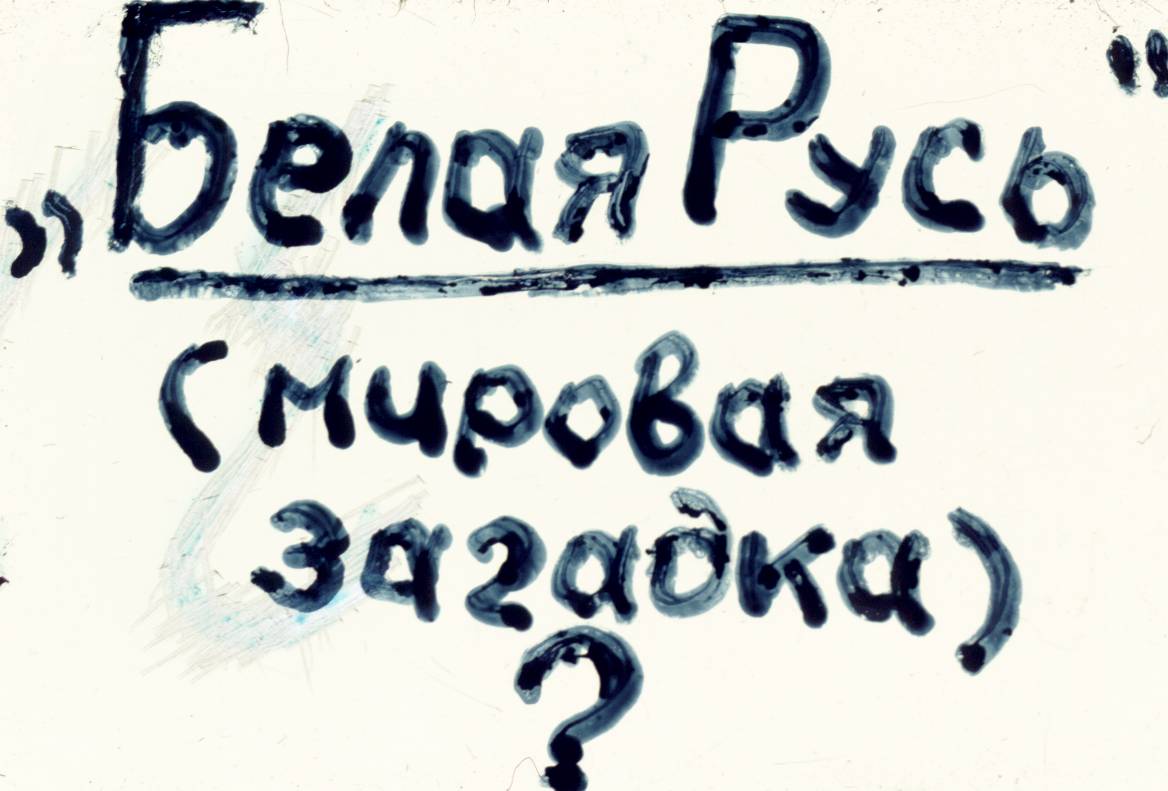 „Белая Русь"
(мировая
загадка)
?